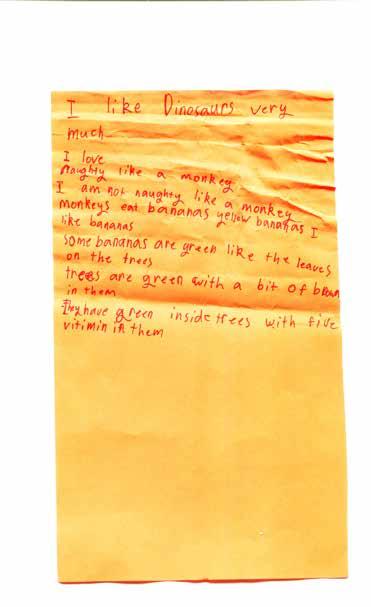 I like Dinosaurs very
much
I love
naughty like a monkey
I am not naughty like a monkey
monkeys eat bananas yellow bananas I
like bananas
some bananas are green like the leaves
on the trees
trees are green with a bit of brown
in them
They have green inside trees with five
vitimin in them